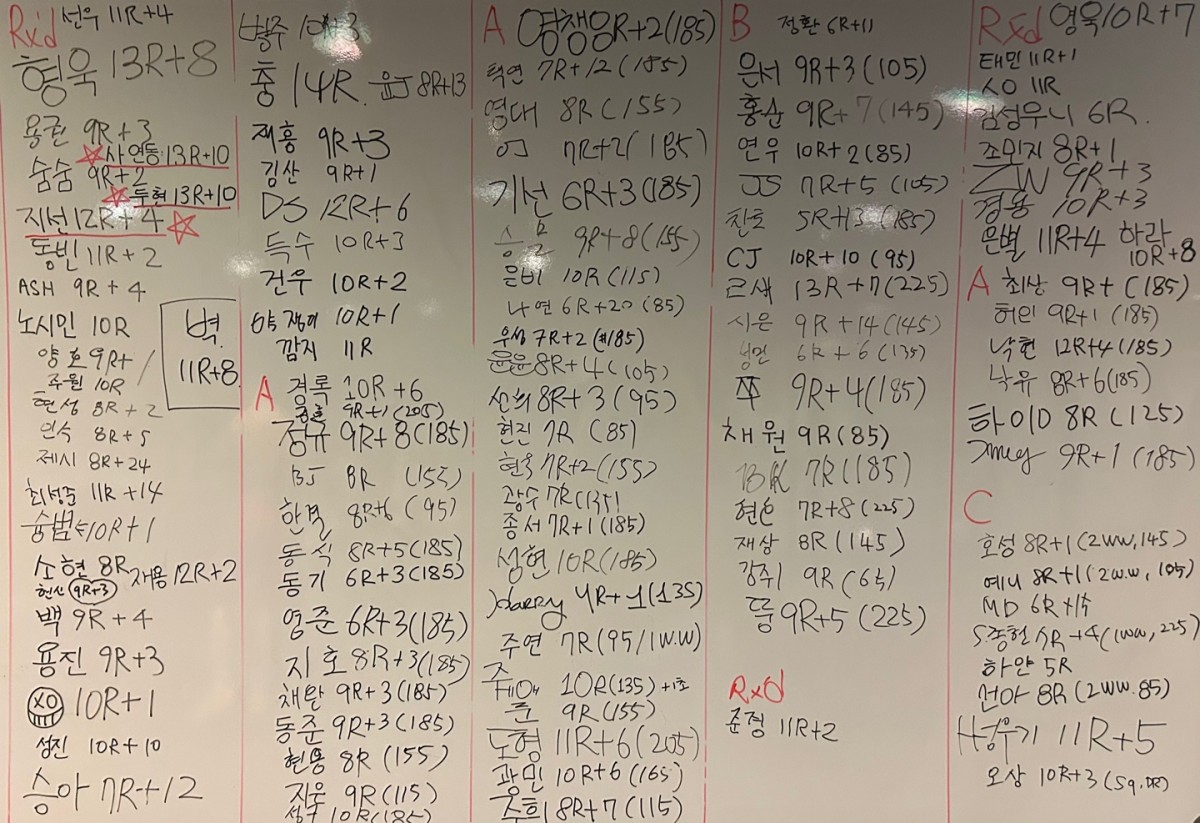 Rxd 선우 11R+4
형욱 13R+8
용권 9R+3
사연등 13R+10
숨숨 9R+2
투현 13R+10
지선 12R+4
동빈 11R+2
ASH 9R+4
노시민 10R
벽
11R+8
양호 9R+1
주원 10R
현성 8R+2
인식 8R+5
제시 8R+24
최성준 11R+14
승범 10R+1
소현 8R
재용 12R+2
현신 9R+3
백 9R+4
용진 9R+3
XO 10R+1
성진 10R+10
승아 7R+12
병주 10R+3
충 14R. 윤J 8R+13
재홍 9R+3
김산 9R+1
DS 12R+6
득수 10R+3
건우 10R+2
10R+1
깜지 11R
A 경록 10R+6
9R+1 (205)
정규 9R+8 (185)
BJ 8R (155)
한결 8R+6 (95)
동식 8R+5 (185)
동기 6R+3 (185)
영준 6R+3 (185)
지호 8R+3 (185)
채완 9R+3 (185)
동준 9R+3 (185)
현용 8R (155)
지운 9R (115)
성구 10R (185)
A 영쟁이 8R+2 (185)
택연 7R+12 (185)
영대 8R (155)
OJ 7R+2 (185)
기선 6R+3 (185)
승문 9R+8 (155)
은비 10R (115)
나연 6R+20 (85)
우성 7R+2 (185)
윤윤 8R+4 (105)
선희 8R+3 (95)
현진 7R (85)
현욱 7R+2 (155)
광수 7R (135)
종서 7R+1 (185)
성현 10R (185)
Harry 4R+1 (135)
주연 7R (95/1W.W)
10R (135) +1초
준 9R (155)
도형 11R+6 (205)
광민 10R+6 (165)
주희 8R+7 (115)
B 정환 6R+11
은서 9R+3 (105)
홍순 9R+7 (145)
연우 10R+2 (85)
JS 7R+5 (105)
찬호 5R+13 (185)
CJ 10R+10 (95)
근새 13R+7 (225)
시은 9R+14 (145)
성민 6R+6 (135)
쭈 9R+4 (185)
채원 9R (85)
BK 7R (185)
현호 7R+8 (225)
재상 8R (145)
강쥐 9R (65)
뚱 9R+5 (225)
Rxd
준정 11R+2
Rxd 영욱 10R+7
태민 11R+1
11R
김성우니 6R.
조민지 8R+1
ZW 9R+3
경용 10R+3
은별 11R+4 하라 10R+8
A 최상 9R+ (185)
허민 9R+1 (185)
낙현 12R+4 (185)
낙유 8R+6 (185)
하이D 8R (125)
9R+1 (185)
C
호성 8R+1 (2WW, 145)
예니 8R+1 (2W.W, 105)
MD 6R+1
S종현 R+4 (1WW, 225)
하얀 5R
선아 8R (2WW.85)
11R+5
오상 10R+3 (Sq.DR)